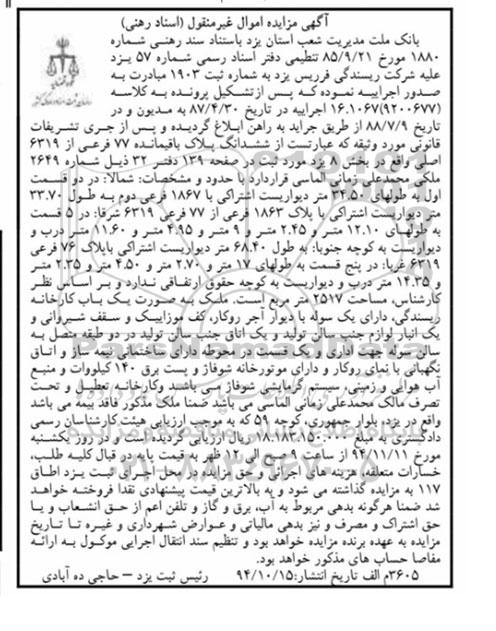 آگهی مزایده اموال غیرمنقول (اسناد رهنی)
بانک ملت مدیریت شعب استان یزد باستناد سند رهنی شماره
۱۸۸۰ مورخ ۸۵/۹/۲۱ تنظیمی دفتر اسناد رسمی شماره ۵۷ یزد
علیه شرکت ریسندگی فرریس یزد به شماره ثبت ۱۹۰۳ مبادرت به
صدور اجراییه نموده که پس ازتشکیل پرونده به کلاسه
۱۶.۱۰۶۷(۹۲۰۰۶۷۷) اجراییه در تاریخ ۸۷/۴/۳۰ به مدیون و در
تاریخ ۸۸/۷/۹ از طریق جراید به راهن ابلاغ گردیده و پس از جری تشریفات
قانونی مورد وثیقه که عبارتست از ششدانگ پلاک باقیمانده ۷۷ فرعی از ۶۳۱۹
اصلی واقع در بخش ۸ یزد مورد ثبت در صفحه ۱۳۹ دفتر ۳۲ ذیل شماره ۲۶۴۹
ملکی محمدعلی زمانی الماسی قراردارد با حدود و مشخصات: شمالا: در دو قسمت
اول به طولهای ۳۴.۵۰ متر دیواریست اشتراکی با ۱۸۶۷ فرعی دوم به طول ۳۳.۷۰
متر دیواریست اشتراکی با پلاک ۱۸۶۳ فرعی از ۷۷ فرعی ۶۳۱۹ شرقا: در ۵ قسمت
به طولهای ۱۲.۱۰ متر و ۲.۴۵ متر و ۹ متر و ۴.۹۵ متر و ۱۱.۶۰ متر درب و
دیواریست به کوچه جنوبا: به طول ۶۸.۴۰ متر دیواریست اشتراکی باپلاک ۷۶ فرعی
۶۳۱۹ غربا: در پنج قسمت به طولهای ۱۷ متر و ۲.۷۰ متر و ۴.۵۰ متر و ۲.۳۵ متر
و ۱۴.۳۵ متر درب و دیواریست به کوچه حقوق ارتفاقی ندارد و بر اساس نظر
کارشناس، مساحت ۲۵۱۷ متر مربع است. ملک به صورت یک باب کارخانه
ریسندگی، دارای یک سوله با دیوار آجر روکار، کف موزاییک و سقف شیروانی و
یک انبار لوازم جنب سالن تولید و یک اتاق جنب سالن تولید در دو طبقه متصل به
سالن سوله جهت اداری و یک قسمت در محوطه دارای ساختمانی نیمه ساز و اتاق
نگهبانی با نمای روکار و دارای موتورخانه شوفاژ و پست برق ۱۴۰ کیلووات و منبع
آب هوایی و زمینی، سیستم گرمایشی شوفاژ می باشد وکارخانه تعطیل و تحت
تصرف مالک محمدعلی زمانی الماسی می باشد ضمنا ملک مذکور فاقد بیمه می باشد
واقع در یزد، بلوار جمهوری، کوچه ۵۹ که به موجب ارزیابی هیئت کارشناسان رسمی
دادگستری به مبلغ ۱۸.۱۸۳.۱۵۰.۰۰۰ ریال ارزیابی گردیده است و در روز یکشنبه
مورخ ۹۴/۱۱/۱۱ از ساعت ۹ صبح الی ۱۲ ظهر به قیمت پایه در قبال کلیه طلب،
خسارات متعلقه، هزینه های اجرائی و حق مزایده در محل اجرای ثبت یزد اطاق
۱۱۷ به مزایده گذاشته می شود و به بالاترین قیمت پیشنهادی نقدا فروخته خواهد
شد ضمنا هرگونه بدهی مربوط به آب، برق و گاز و تلفن اعم از حق انشعاب و یا
حق اشتراک و مصرف و نیز بدهی مالیاتی و عوارض شهرداری و غیره تا تاریخ
مزایده به عهده برنده مزایده خواهد بود و تنظیم سند انتقال اجرایی موکول به ارائه
مفاصا حساب های مذکور خواهد بود.
۳۶۰۵م الف تاریخ انتشار:۹۴/۱۰/۱۵ رئیس ثبت یزد – حاجی ده آبادی